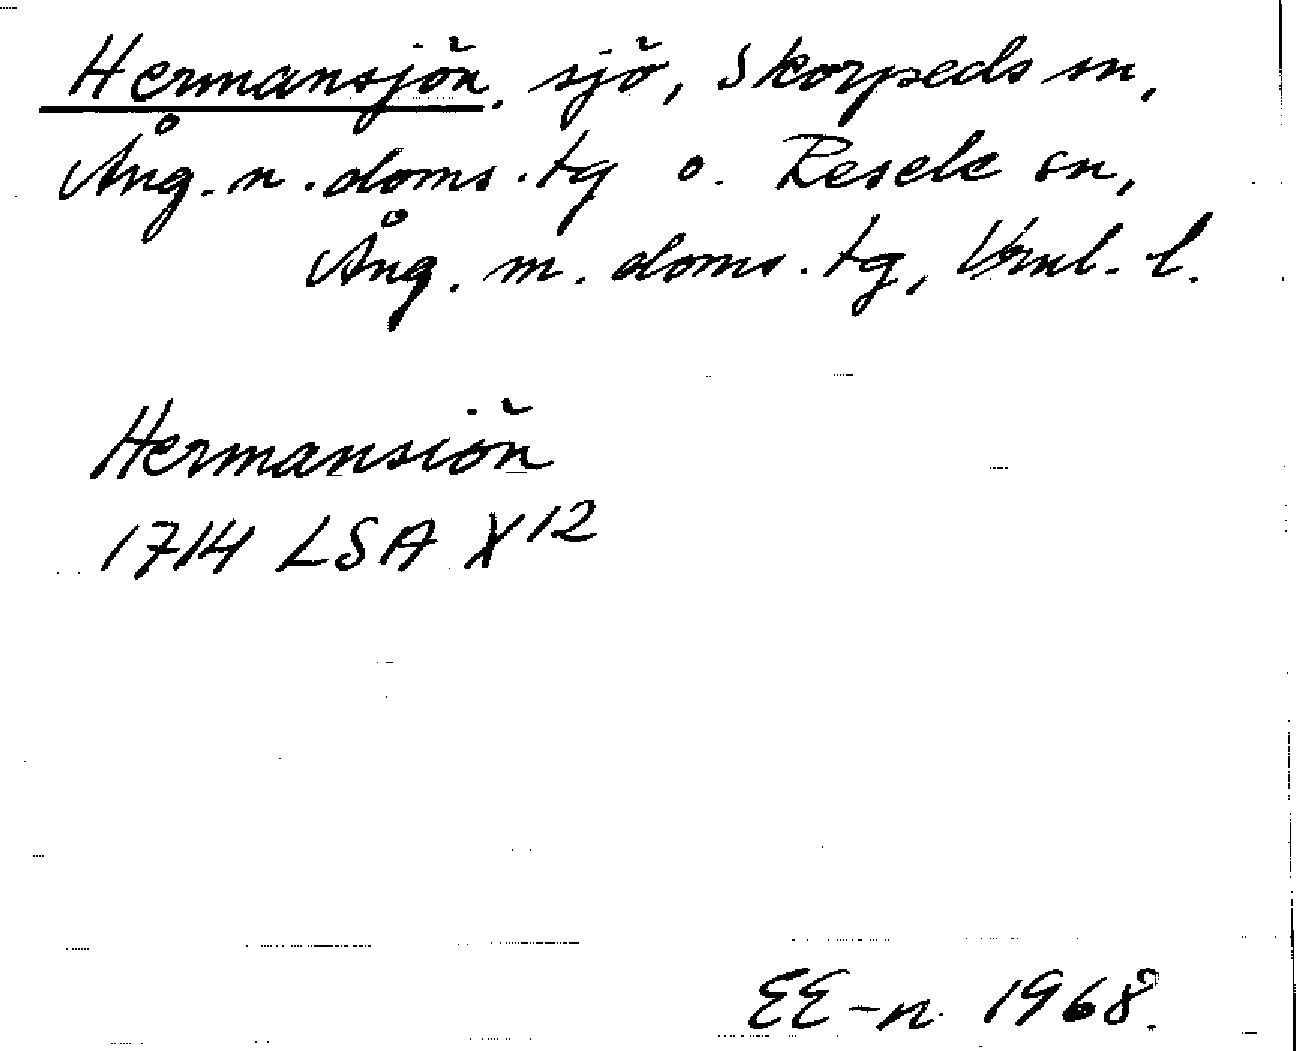 Hermansjön, sjö, Skorpeds sn,
Ång. n. doms. tg o. Resele sn,
Ång. m. doms. tg, Vnnl. l.
Hermansiön
1714 LSA X 12
EE-n 1968.